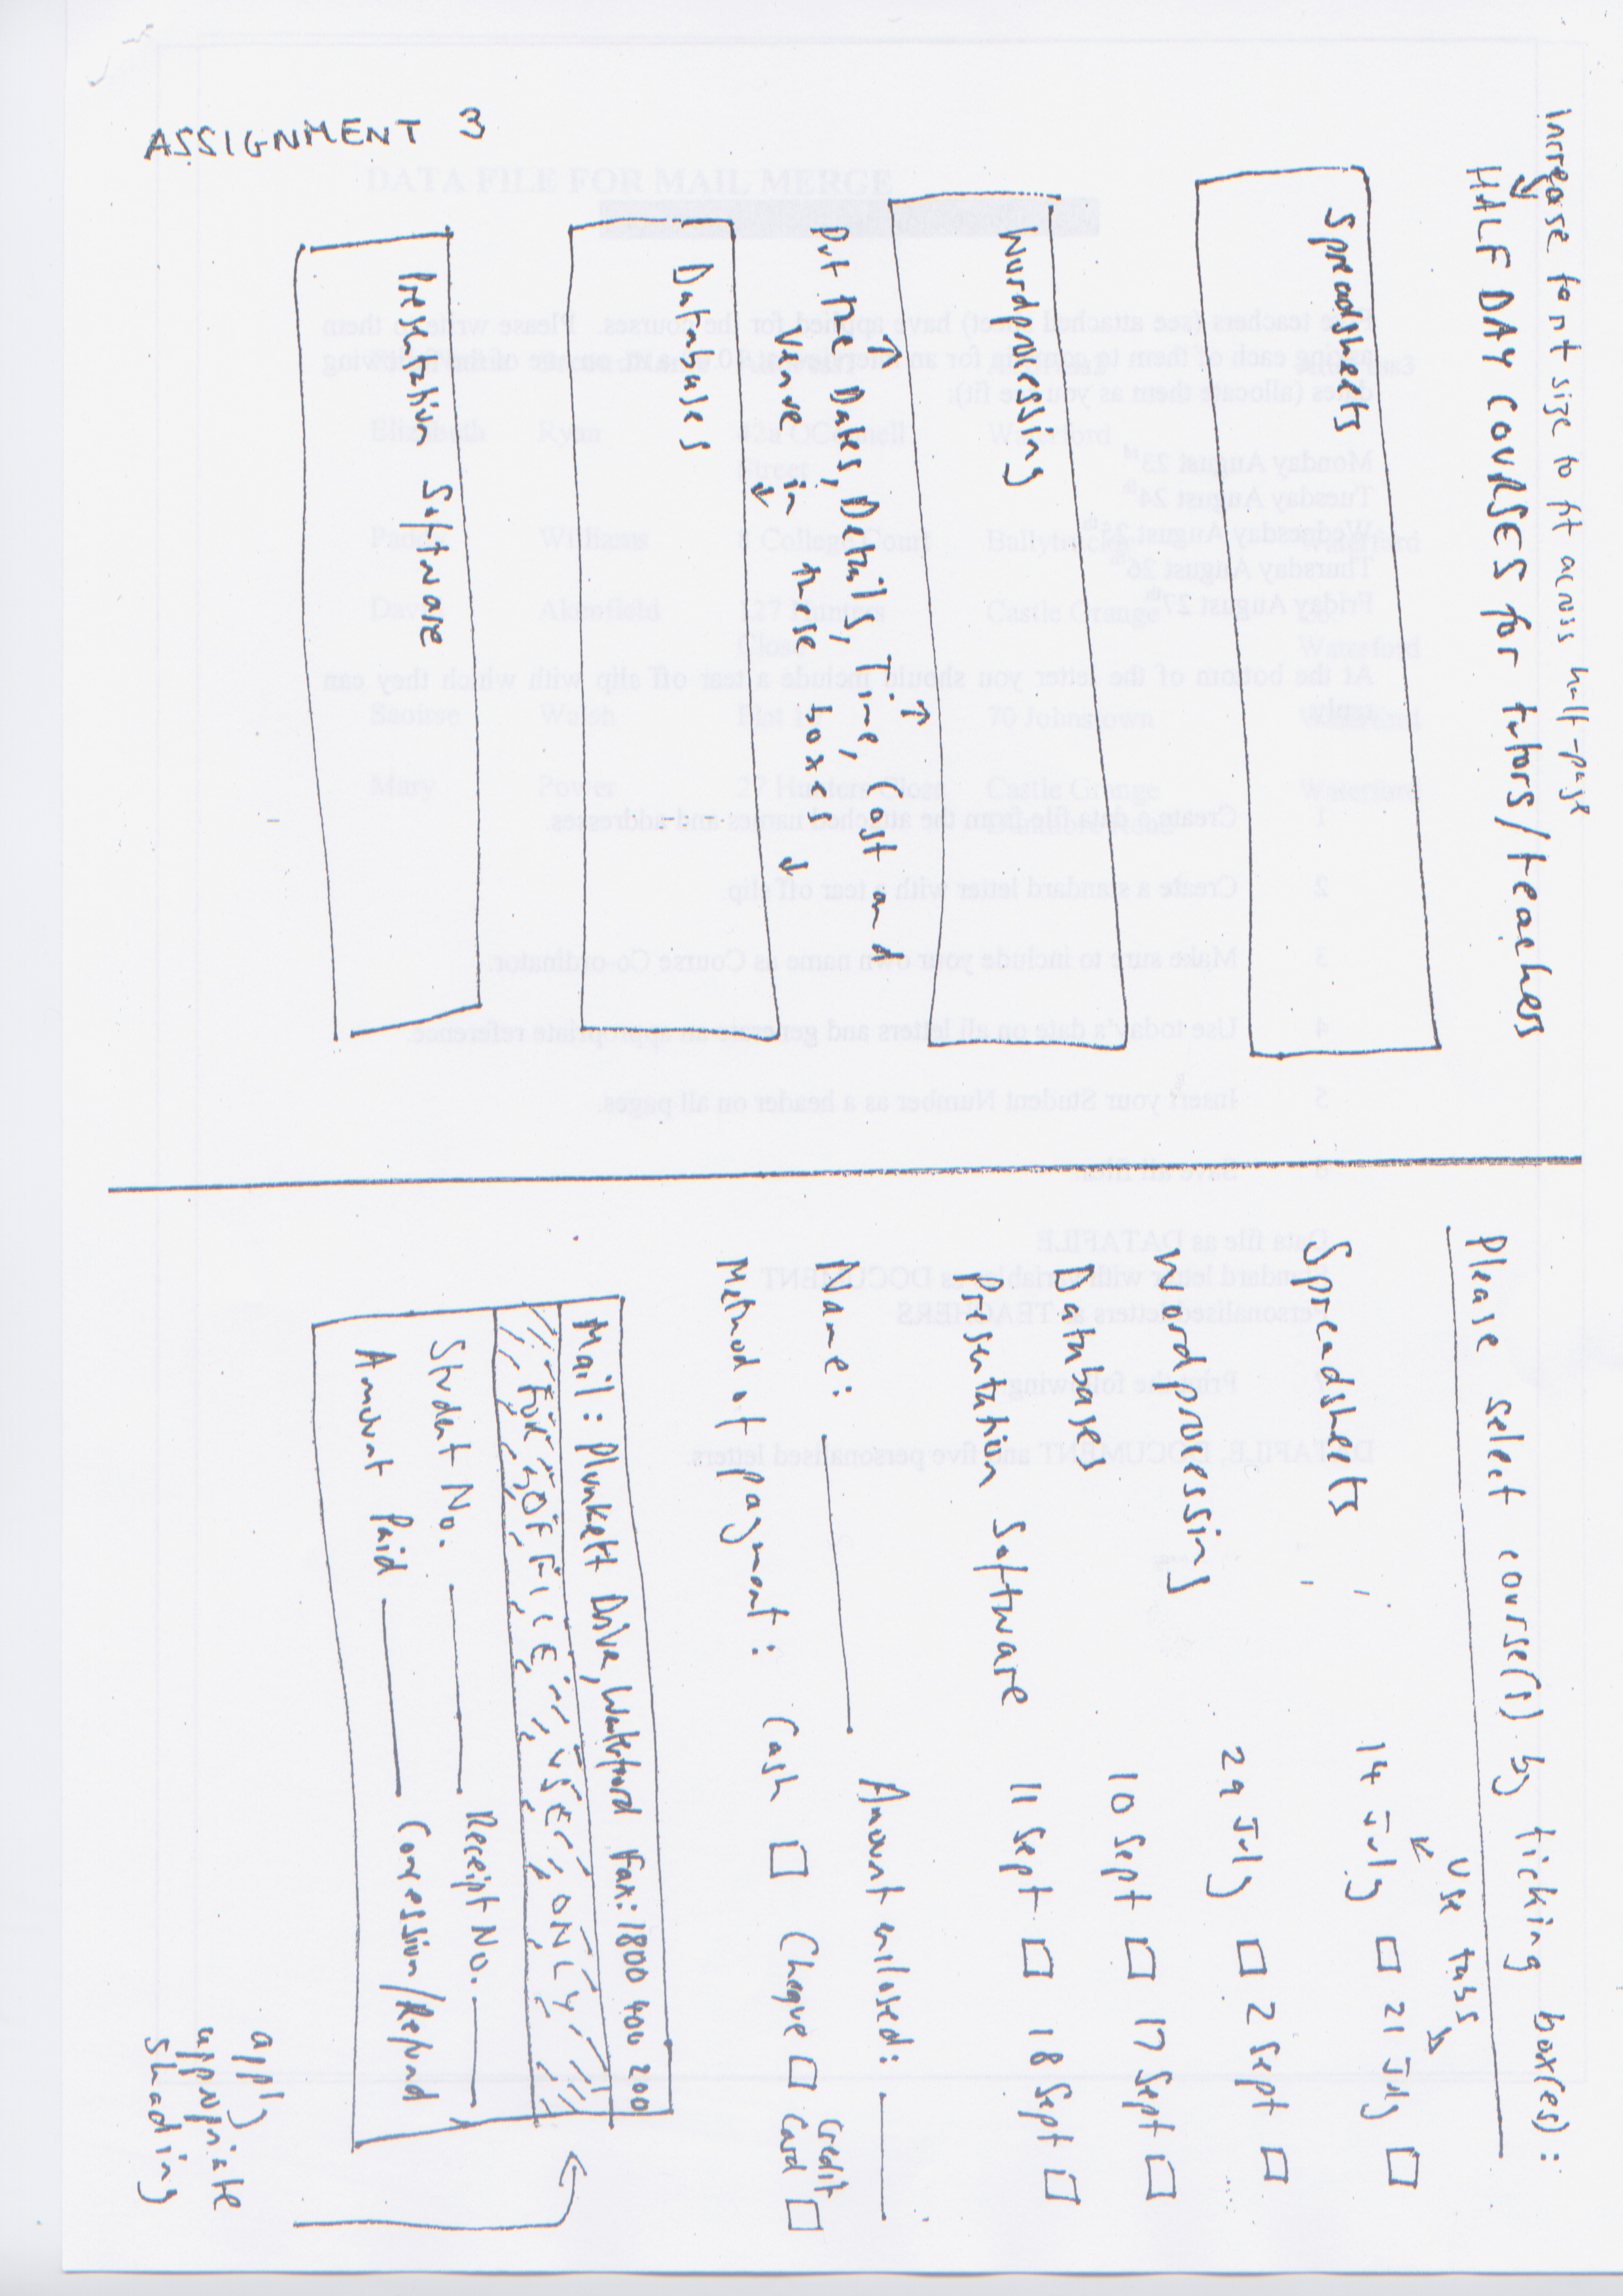 Increase font size to fit across half-page
HALF DAY COURSES for tutors/teachers
Spreadsheets
Wordprocessing
Put the Dates, Details, Time, Cost and
Venue in these boxes
Databases
Presentation Software
ASSIGNMENT 3
Please select course(s) by ticking box(es):
Use tabs
Spreadsheets 14 July 21 July
Wordprocessing 29 July 2 Sept
Databases 10 Sept 17 Sept
Presentation Software 11 Sept 18 Sept
Name: Amount enclosed:
Method of payment: Cash Cheque Credit Card
Mail: Plunkett Drive, Waterford Fax: 1800 400 200
FOR OFFICE USE ONLY
Student No. Receipt No.
Amount Paid Concession/Refund
apply
appropriate
shading